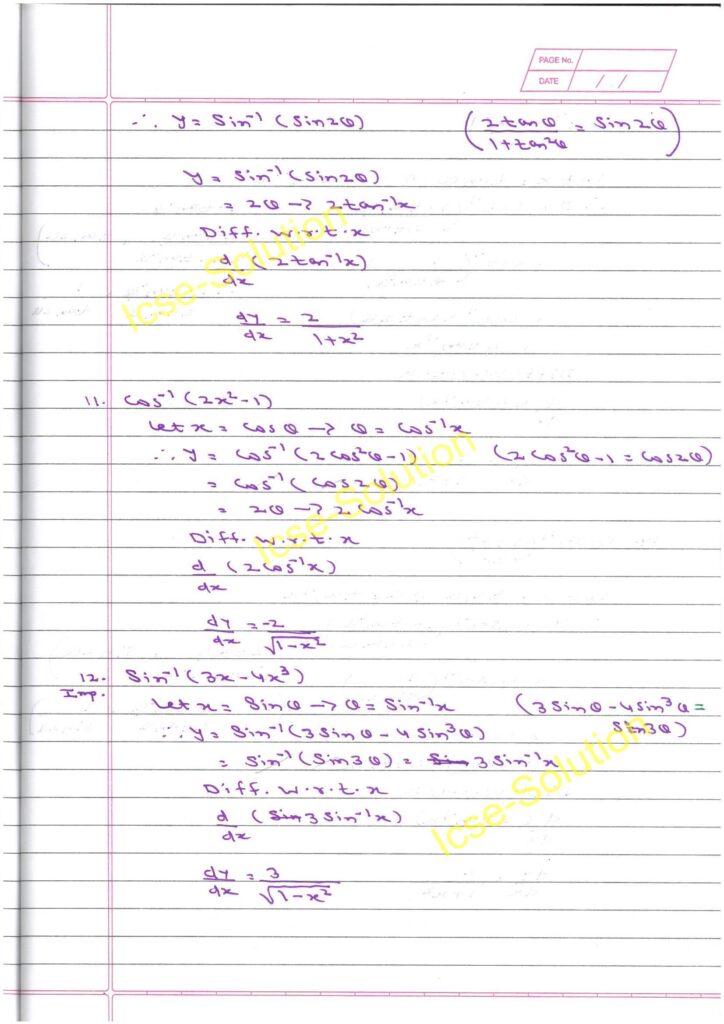 PAGE No.
DATE / /
∴ y = Sin⁻¹ (Sin2θ) (2tanθ/1+tan²θ = Sin2θ)
y = Sin⁻¹ (Sin2θ)
= 2θ → 2tan⁻¹x
Diff. w.r.t. x
d/dx (2tan⁻¹x)
dy/dx = 2/1+x²
11. Cos⁻¹ (2x²-1)
Let x = Cosθ → θ = Cos⁻¹x
∴ y = Cos⁻¹ (2Cos²θ-1) (2Cos²θ-1 = Cos2θ)
= Cos⁻¹ (Cos2θ)
= 2θ → 2Cos⁻¹x
Diff. w.r.t. x
d/dx (2Cos⁻¹x)
dy/dx = -2/√1-x²
12. Sin⁻¹ (3x-4x³)
Imp.
Let x = Sinθ → θ = Sin⁻¹x (3Sinθ-4Sin³θ =
Sin3θ)
∴ y = Sin⁻¹ (3Sinθ - 4Sin³θ)
= Sin⁻¹ (Sin3θ) = Sin 3Sin⁻¹x
Diff. w.r.t. x
d/dx (Sin 3Sin⁻¹x)
dy/dx = 3/√1-x²
Icse-Solution
Icse-Solution
Icse-Solution